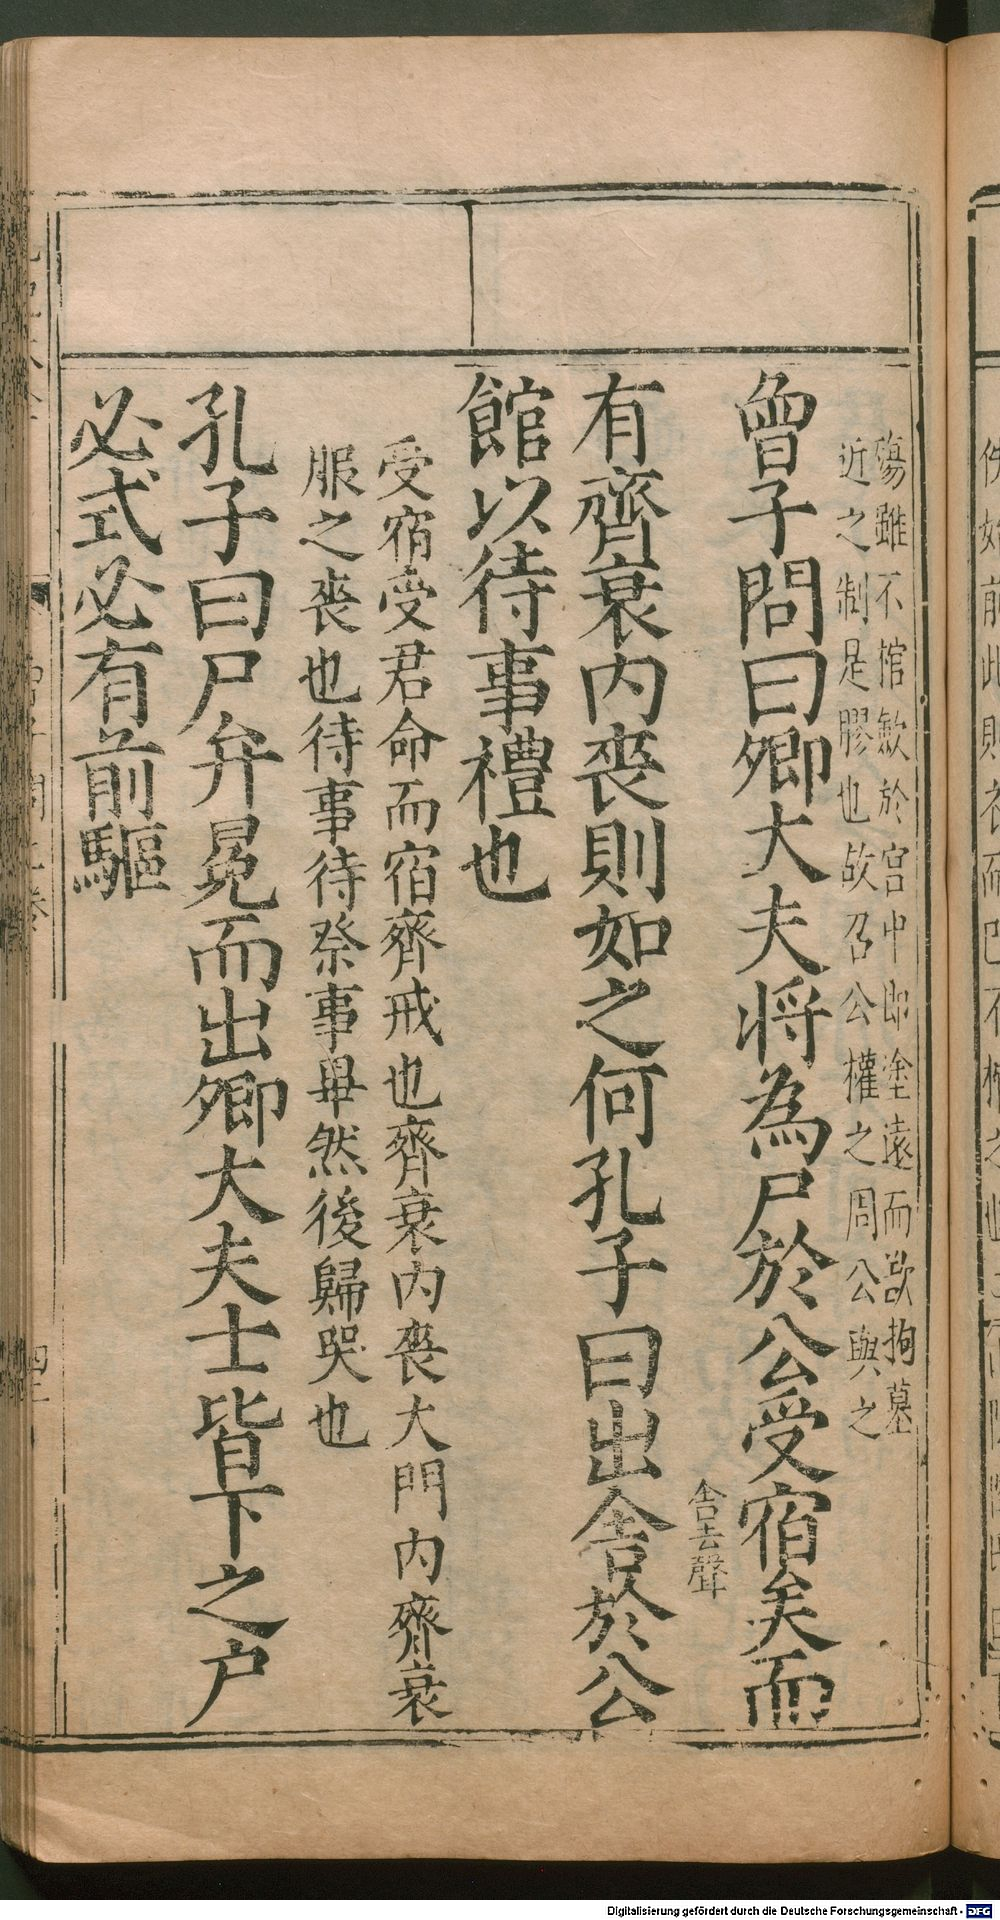 殤雖不棺斂於宮中即塗遠而欲拘墓
近之制是膠也故召公權之周公與之
曾子問曰卿大夫將為尸於公受宿矣而
舍去聲
有齊衰内喪則如之何孔子曰出舍於公
館以待事禮也
受宿受君命而宿齊戒也齊衰内喪大門内齊衰
服之喪也待事待祭事畢然後歸哭也
孔子曰尸弁冕而出卿大夫士皆下之户
必式必有前驅
Digitalisierung gefördert durch die Deutsche Forschungsgemeinschaft - DFG